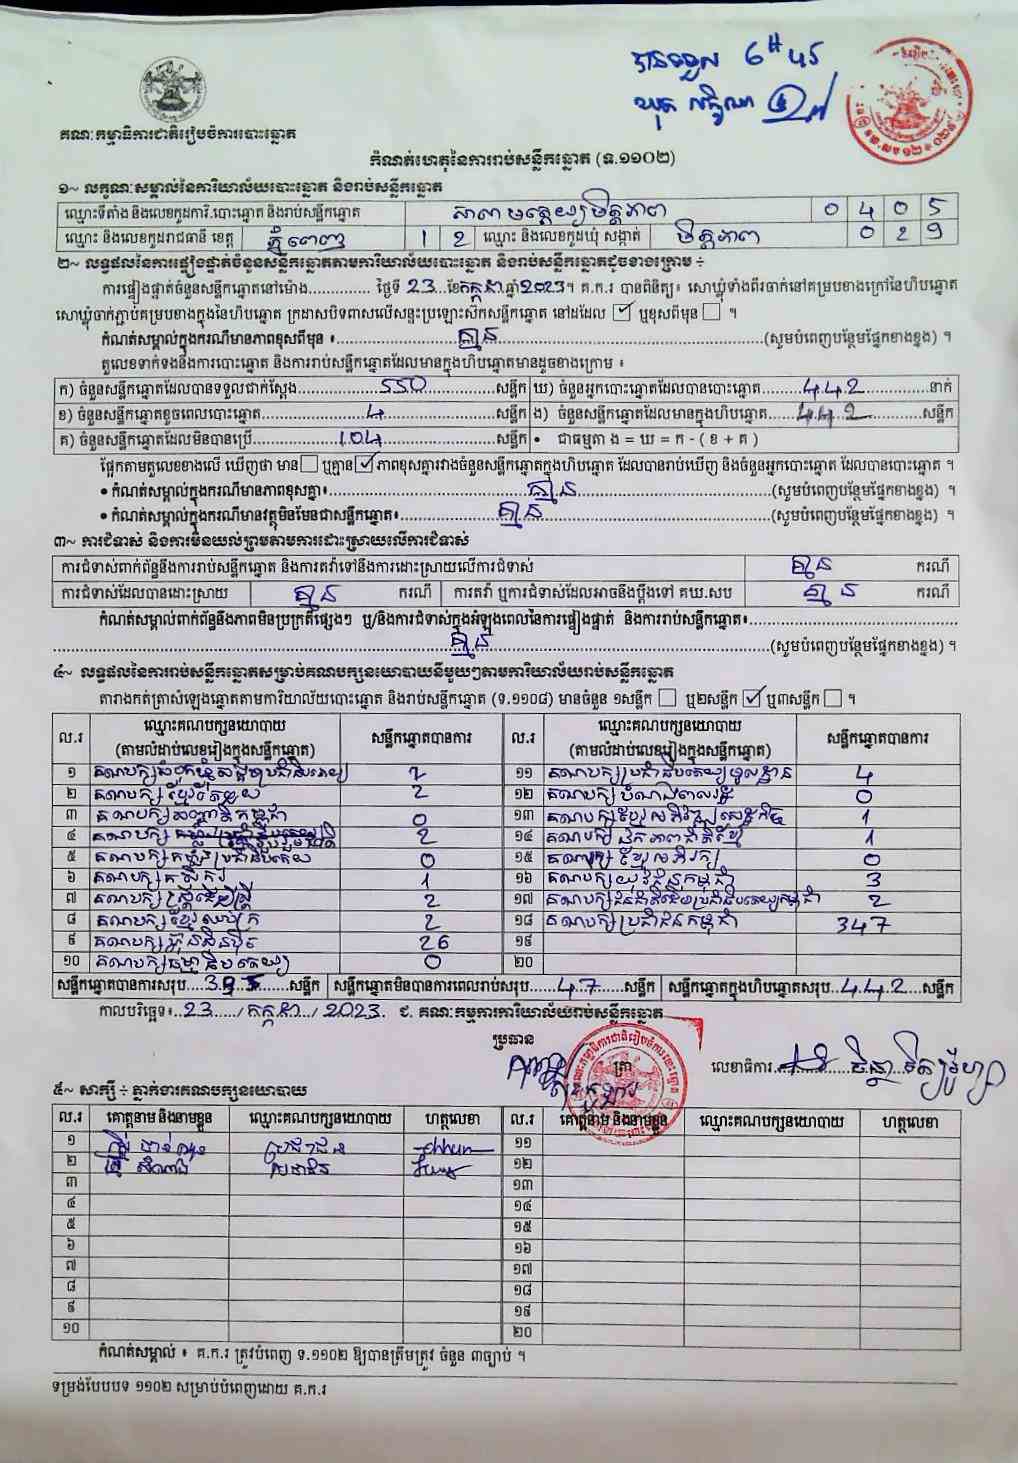 បានទទួល
គណៈកម្មាធិការជាតិរៀបចំការបោះឆ្នោត
កំណត់ហេតុនៃការរាប់សន្លឹកឆ្នោត (ទ.១១០២)
១~ លក្ខណៈសម្គាល់នៃការិយាល័យបោះឆ្នោត និងរាប់សន្លឹកឆ្នោត
ឈ្មោះទីតាំង និងលេខកូដការិ.បោះឆ្នោត និងរាប់សន្លឹកឆ្នោត សាលាមត្តេយ្យមិត្តភាព 0 4 0 5
ឈ្មោះ និងលេខកូដរាជធានី ខេត្ត ភ្នំពេញ 1 2 ឈ្មោះ និងលេខកូដឃុំ សង្កាត់ មិត្តភាព 0 2 9
២~ លទ្ធផលនៃការផ្ទៀងផ្ទាត់ចំនួនសន្លឹកឆ្នោតតាមការិយាល័យបោះឆ្នោត និងរាប់សន្លឹកឆ្នោតដូចខាងក្រោម ÷
ការផ្ទៀងផ្ទាត់ចំនួនសន្លឹកឆ្នោតនៅម៉ោង.............. ថ្ងៃទី 23 ខែកក្កដា ឆ្នាំ2023។ គ.ក.រ បានពិនិត្យ៖ សោឃ្លុំទាំងពីរចាក់នៅគម្របខាងក្រៅនៃហិបឆ្នោត
សោឃ្លុំចាក់ភ្ជាប់គម្របខាងក្នុងនៃហិបឆ្នោត ក្រដាសបិទពាសលើសន្ទះប្រឡោះស៊កសន្លឹកឆ្នោត នៅដដែល ☑ ឬខុសពីមុន ☐ ។
កំណត់សម្គាល់ក្នុងករណីមានភាពខុសពីមុន ៖ គ្មាន (សូមបំពេញបន្ថែមផ្នែកខាងខ្នង) ។
តួលេខទាក់ទងនឹងការបោះឆ្នោត និងការរាប់សន្លឹកឆ្នោតដែលមានក្នុងហិបឆ្នោតមានដូចខាងក្រោម ៖
ក) ចំនួនសន្លឹកឆ្នោតដែលបានទទួលជាក់ស្តែង 550 សន្លឹក ឃ) ចំនួនអ្នកបោះឆ្នោតដែលបានបោះឆ្នោត 442 នាក់
ខ) ចំនួនសន្លឹកឆ្នោតខូចពេលបោះឆ្នោត 4 សន្លឹក ង) ចំនួនសន្លឹកឆ្នោតដែលមានក្នុងហិបឆ្នោត 442 សន្លឹក
គ) ចំនួនសន្លឹកឆ្នោតដែលមិនបានប្រើ 104 សន្លឹក • ជាធម្មតា ង = ឃ = ក - ( ខ + គ )
ផ្អែកតាមតួលេខខាងលើ ឃើញថា មាន ☐ ឬគ្មាន ☑ ភាពខុសគ្នារវាងចំនួនសន្លឹកឆ្នោតក្នុងហិបឆ្នោត ដែលបានរាប់ឃើញ និងចំនួនអ្នកបោះឆ្នោត ដែលបានបោះឆ្នោត ។
• កំណត់សម្គាល់ក្នុងករណីមានភាពខុសគ្នា៖ គ្មាន (សូមបំពេញបន្ថែមផ្នែកខាងខ្នង) ។
• កំណត់សម្គាល់ក្នុងករណីមានវត្ថុមិនមែនជាសន្លឹកឆ្នោត៖ គ្មាន (សូមបំពេញបន្ថែមផ្នែកខាងខ្នង) ។
៣~ ការជំទាស់ និងការមិនយល់ព្រមតាមការដោះស្រាយលើការជំទាស់
ការជំទាស់ពាក់ព័ន្ធនឹងការរាប់សន្លឹកឆ្នោត និងការតវ៉ាទៅនឹងការដោះស្រាយលើការជំទាស់ គ្មាន ករណី
ការជំទាស់ដែលបានដោះស្រាយ គ្មាន ករណី ការតវ៉ា ឬការជំទាស់ដែលអាចនឹងប្តឹងទៅ គឃ.សប គ្មាន ករណី
កំណត់សម្គាល់ពាក់ព័ន្ធនឹងភាពមិនប្រក្រតីផ្សេងៗ ឬ/និងការជំទាស់ក្នុងអំឡុងពេលនៃការផ្ទៀងផ្ទាត់ និងការរាប់សន្លឹកឆ្នោត៖
គ្មាន (សូមបំពេញបន្ថែមផ្នែកខាងខ្នង) ។
៤~ លទ្ធផលនៃការរាប់សន្លឹកឆ្នោតសម្រាប់គណបក្សនយោបាយនីមួយៗតាមការិយាល័យរាប់សន្លឹកឆ្នោត
តារាងកត់ត្រាសំឡេងឆ្នោតតាមការិយាល័យបោះឆ្នោត និងរាប់សន្លឹកឆ្នោត (ទ.១១០៨) មានចំនួន ១សន្លឹក ☐ ឬ២សន្លឹក ☑ ឬ៣សន្លឹក ☐ ។
ល.រ ឈ្មោះគណបក្សនយោបាយ (តាមលំដាប់លេខរៀងក្នុងសន្លឹកឆ្នោត) សន្លឹកឆ្នោតបានការ ល.រ ឈ្មោះគណបក្សនយោបាយ (តាមលំដាប់លេខរៀងក្នុងសន្លឹកឆ្នោត) សន្លឹកឆ្នោតបានការ
១ គណបក្សសំបុកឃ្មុំសង្គមប្រជាធិបតេយ្យ 2 ១១ គណបក្សប្រជាធិបតេយ្យមូលដ្ឋាន 4
២ គណបក្សខ្មែររួបរួម 2 ១២ គណបក្ស 0
៣ គណបក្សសញ្ជាតិកម្ពុជា 0 ១៣ គណបក្សខ្មែរអភិវឌ្ឍន៍សេដ្ឋកិច្ច 1
៤ គណបក្ស 2 ១៤ គណបក្សឯកភាពជាតិខ្មែរ 1
៥ គណបក្សកម្លាំងប្រជាធិបតេយ្យ 0 ១៥ គណបក្សខ្មែរអភិរក្ស 0
៦ គណបក្សកសិករ 1 ១៦ គណបក្សយុវជនកម្ពុជា 3
៧ គណបក្សស្ត្រីដើម្បីស្ត្រី 2 ១៧ គណបក្សជនជាតិដើមប្រជាធិបតេយ្យកម្ពុជា 2
៨ គណបក្សខ្មែរឈប់ក្រ 2 ១៨ គណបក្សប្រជាជនកម្ពុជា 347
៩ គណបក្សហ៊្វុនស៊ិនប៉ិច 26 ១៩
១០ គណបក្សធម្មាធិបតេយ្យ 0 ២០
សន្លឹកឆ្នោតបានការសរុប 395 សន្លឹក សន្លឹកឆ្នោតមិនបានការពេលរាប់សរុប 47 សន្លឹក សន្លឹកឆ្នោតក្នុងហិបឆ្នោតសរុប 442 សន្លឹក
កាលបរិច្ឆេទ៖ 23 / កក្កដា / 2023. ជ. គណៈកម្មការការិយាល័យរាប់សន្លឹកឆ្នោត
ប្រធាន
ត្រា លេខាធិការ
៥~ សាក្សី ÷ ភ្នាក់ងារគណបក្សនយោបាយ
ល.រ គោត្តនាម និងនាមខ្លួន ឈ្មោះគណបក្សនយោបាយ ហត្ថលេខា ល.រ គោត្តនាម និងនាមខ្លួន ឈ្មោះគណបក្សនយោបាយ ហត្ថលេខា
១ ប្រជាជន ១១
២ ប្រជាជន ១២
៣ ១៣
៤ ១៤
៥ ១៥
៦ ១៦
៧ ១៧
៨ ១៨
៩ ១៩
១០ ២០
កំណត់សម្គាល់ ៖ គ.ក.រ ត្រូវបំពេញ ទ.១១០២ ឱ្យបានត្រឹមត្រូវ ចំនួន ៣ច្បាប់ ។
ទម្រង់បែបបទ ១១០២ សម្រាប់បំពេញដោយ គ.ក.រ